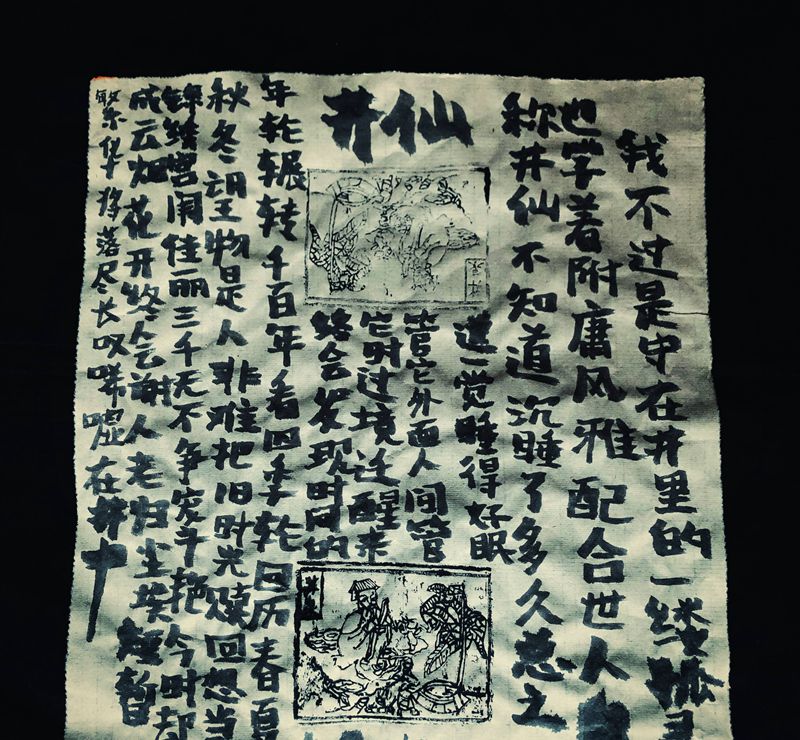 井仙
我不过是守在井里的一缕孤
也学着附庸风雅配合世人自
称井仙不知道沉睡了多久总之
这一觉睡得好眠
管它外面人间管
它时过境迁醒来
终会发现时间的
年轮辗转千百年看四季轮回历春夏
秋冬望物是人非难把旧时光赎回想当
锦绣宫闱佳丽三千无不争宠斗艳今时却
成云烟花开终会谢人老归尘埃短暂
繁华将落尽长叹唏嘘在井中